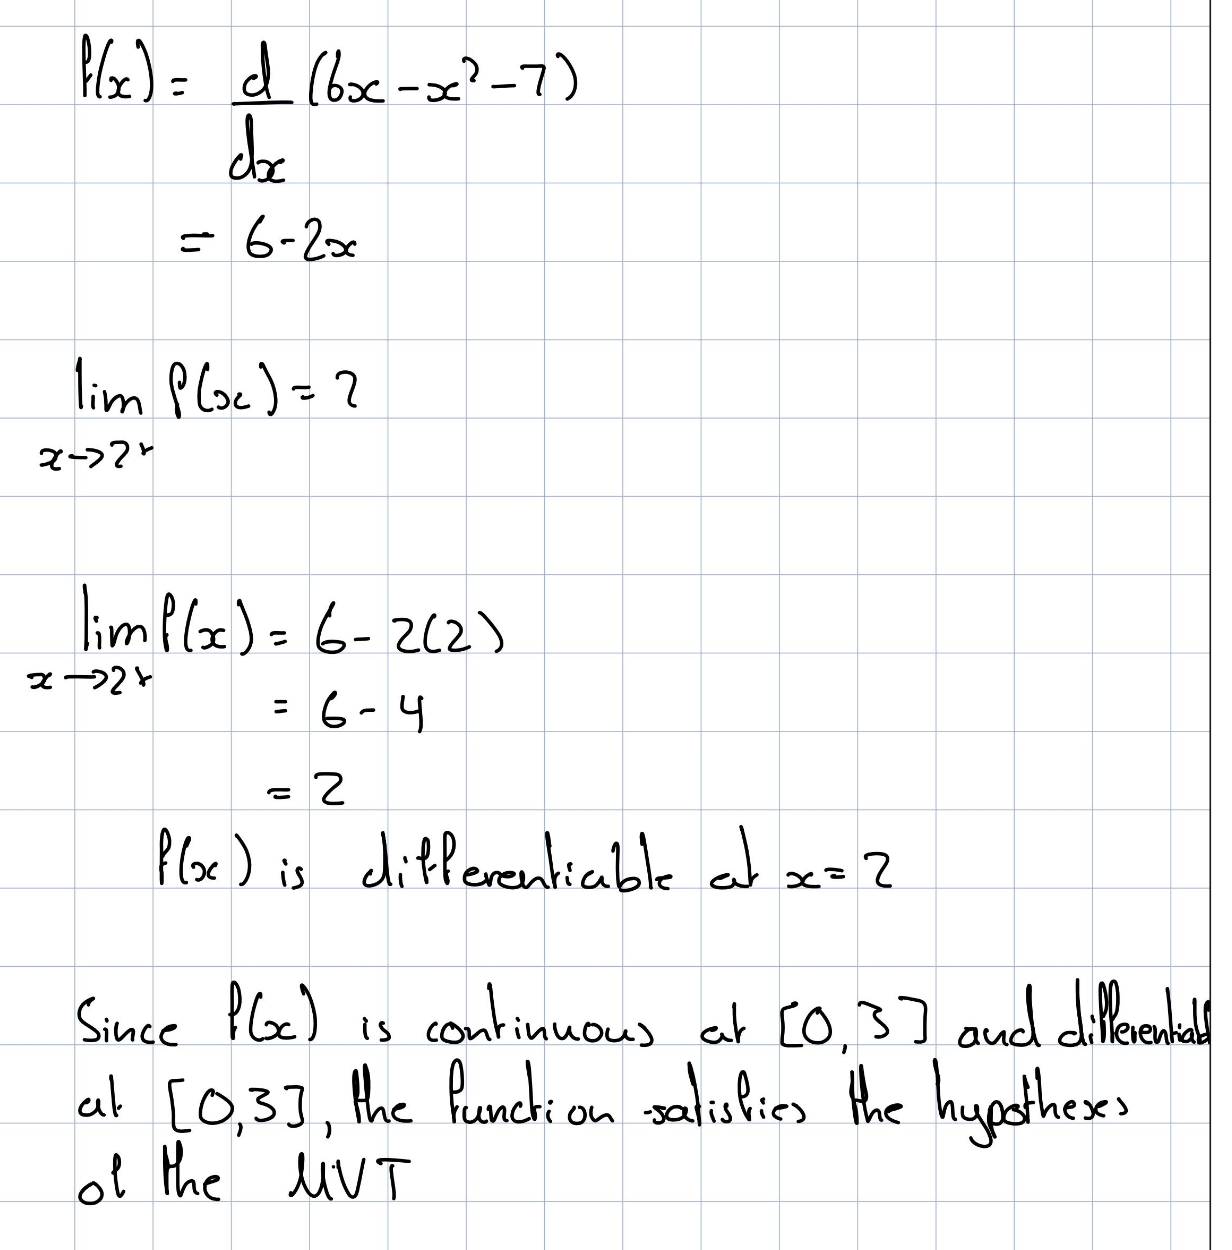 f(x) = d/dx (6x - x² - 7)
= 6 - 2x
lim f(x) = 2
x→2⁺
lim f(x) = 6 - 2(2)
x→2⁺
= 6 - 4
= 2
f(x) is differentiable at x = 2
Since f(x) is continuous at [0, 3] and differentiabl
at [0,3], the function satisfies the hypotheses
of the MVT